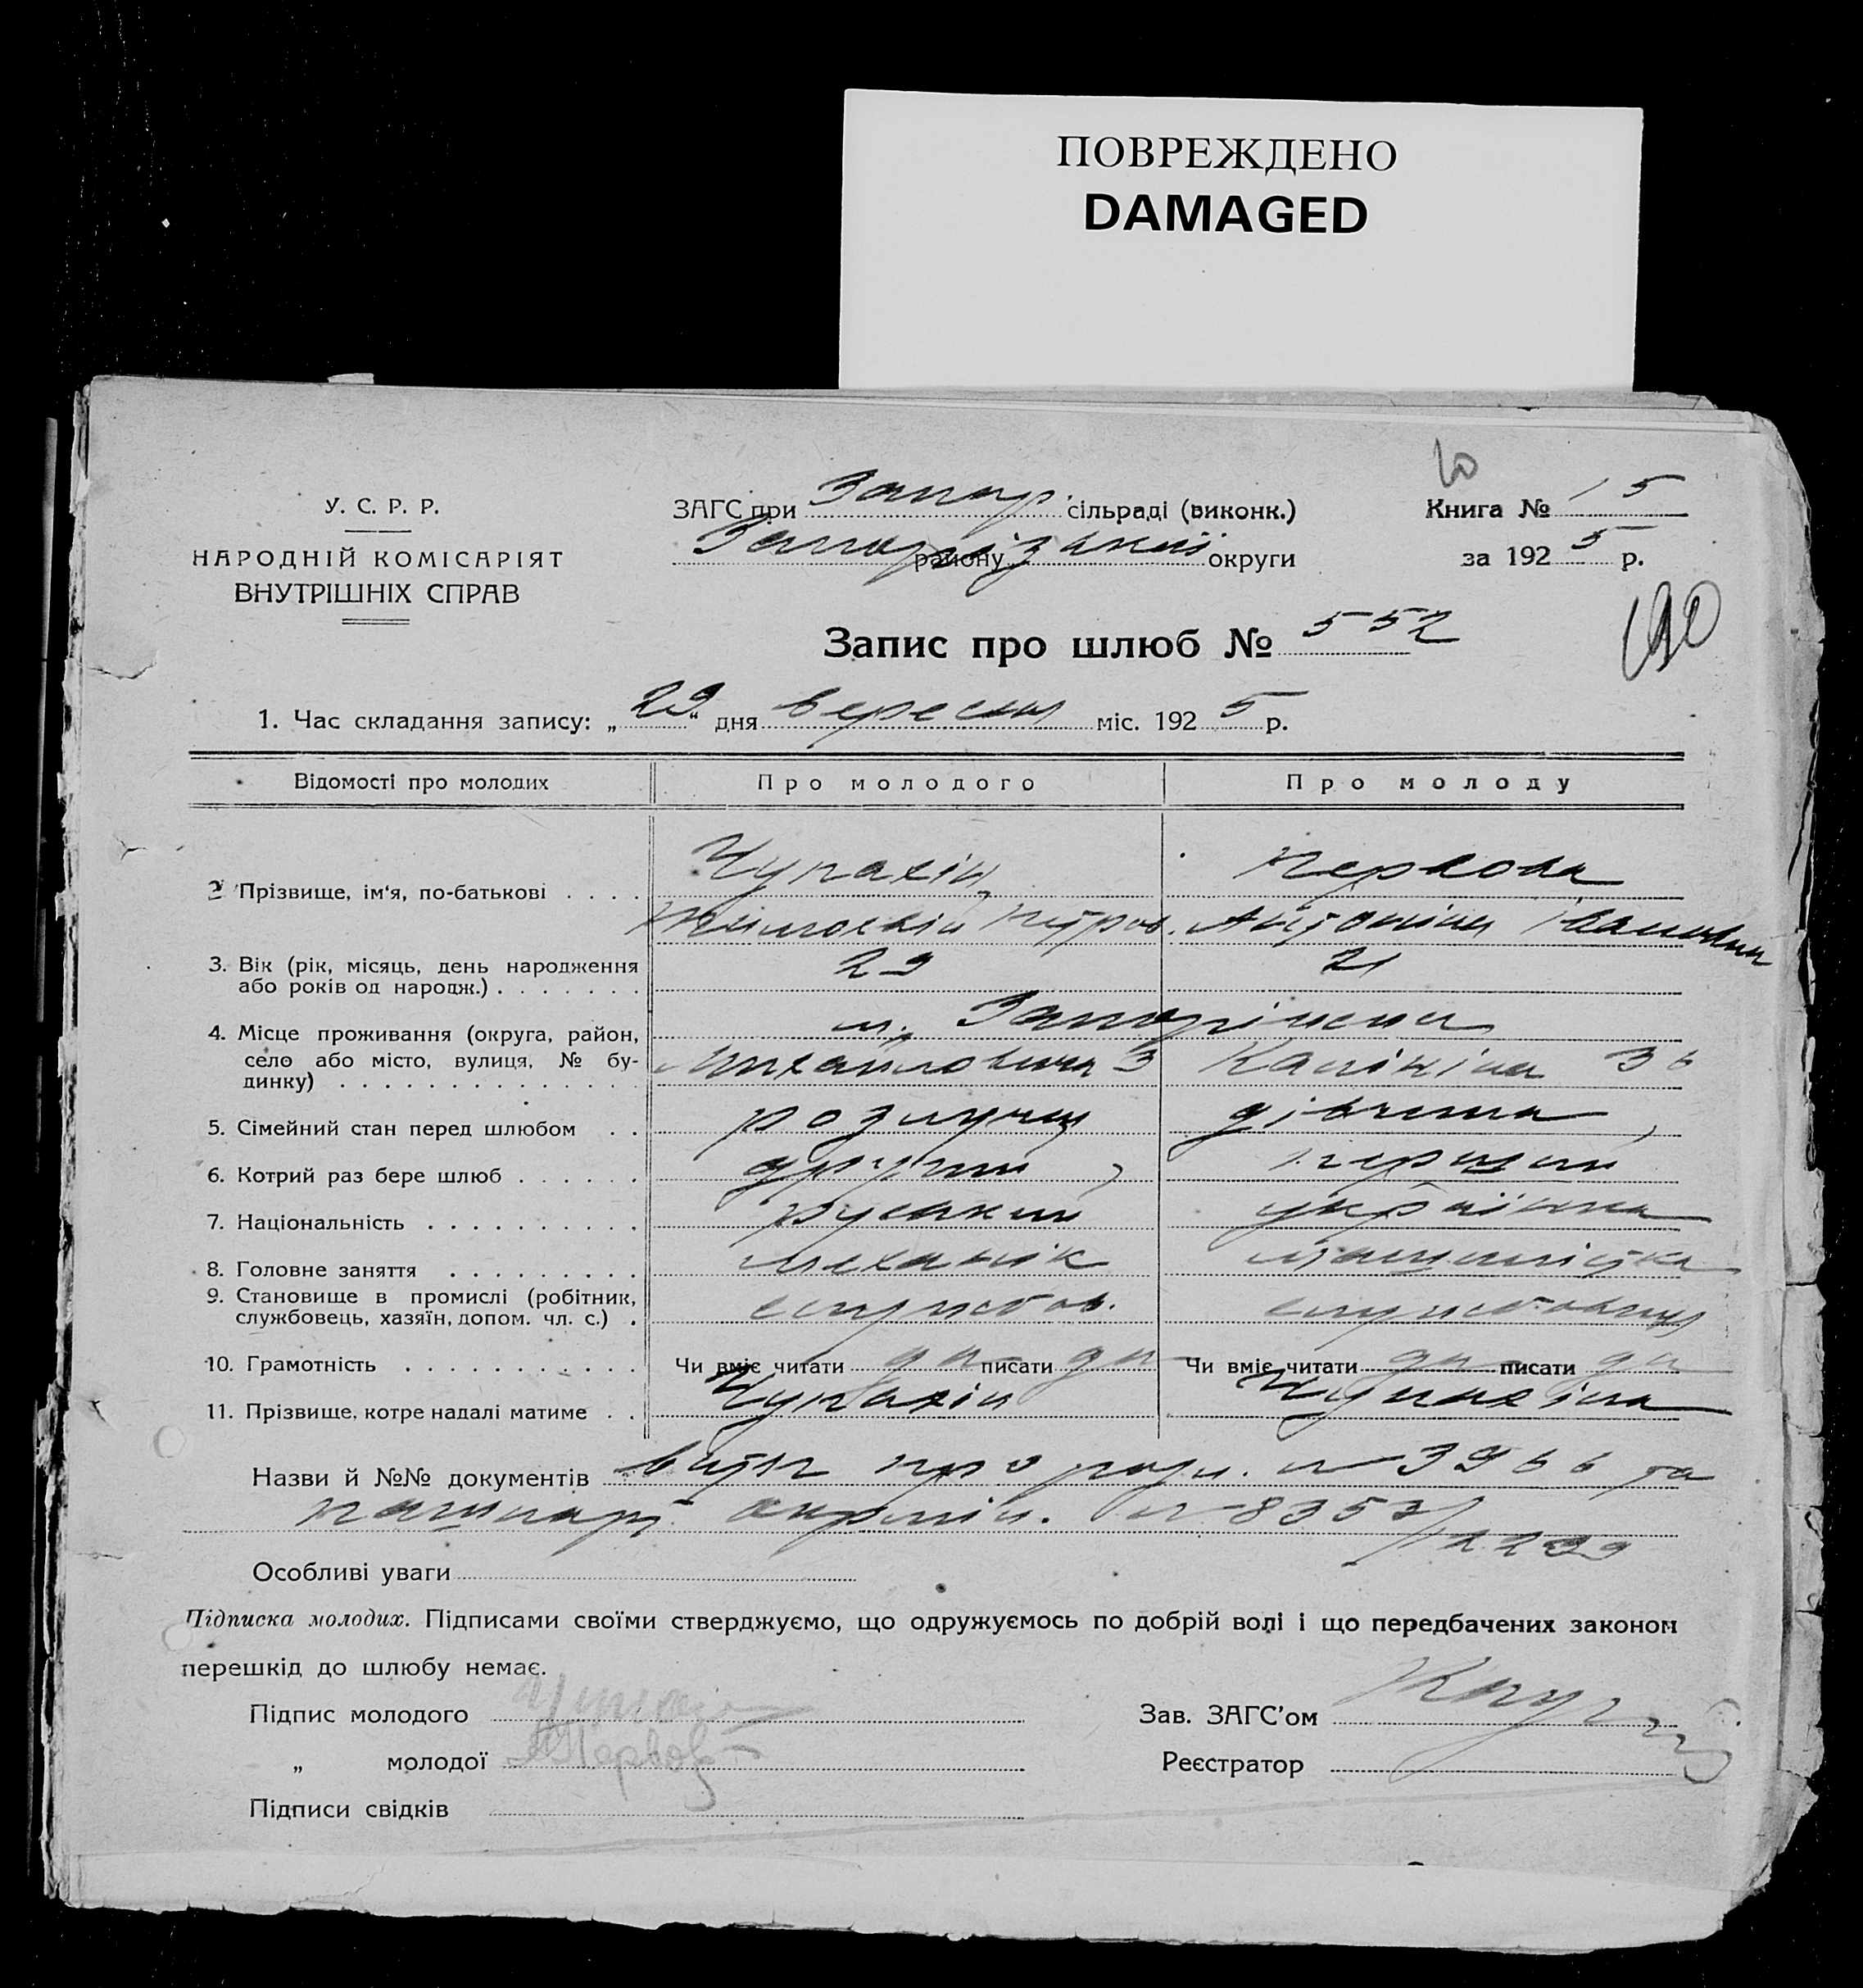 ПОВРЕЖДЕНО
DAMAGED
У. С. Р. Р.
НАРОДНІЙ КОМІСАРІЯТ
ВНУТРІШНІХ СПРАВ
ЗАГС при Запор. сільраді (виконк.)
району Запорізької округи
Книга № 15
за 1925 р.
Запис про шлюб № 552
1. Час складання запису: „29“ дня вересня міс. 1925 р.
Відомості про молодих Про молодого Про молоду
2 Прізвище, ім'я, по-батькові . . . . Чупахін Первова
Петров. Антоніна Івановна
3. Вік (рік, місяць, день народження 29 21
або років од нарoдж.) . . . . . . .
4. Місце проживання (округа, район, м. Запоріжжя
село або місто, вулиця, № бу- Михайловська 3 Калініна 36
динку) . . . . . . . . . . . . . .
5. Сімейний стан перед шлюбом . . дівчина
6. Котрий раз бере шлюб . . . . . . другий перший
7. Національність . . . . . . . . . . руський українка
8. Головне заняття . . . . . . . . . механік машиністка
9. Становище в промислі (робітник, службов. службовиця
службовець, хазяїн, допом. чл. с.) .
10. Грамотність . . . . . . . . . . . Чи вміє читати да писати да Чи вміє читати да писати да
11. Прізвище, котре надалі матиме . . Чупахін Чупахіна
Назви й №№ документів витяг про розл. № 3966 та
пашпорт № 8353/
Особливі уваги
Підписка молодих. Підписами своїми стверджуємо, що одружуємось по добрій волі і що передбачених законом
перешкід до шлюбу немає.
Підпис молодого
„ молодої АПервова
Підписи свідків
Зав. ЗАГС'ом
Реєстратор